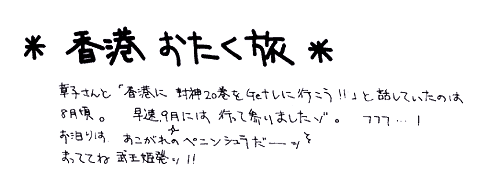 * 香港おたく旅 *
草子さんと「香港に封神20巻をGetしに行こう!!」と話していたのは
8月頃。 早速9月には行って参りましたゾ。 フフフ…!
お泊りは あこがれのペニンシュラだーーッ
まっててね 武王姫発ッ!!